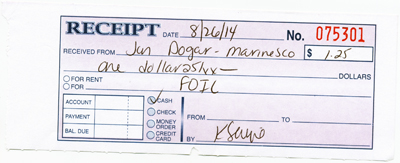 RECEIPT DATE 8/26/14 No. 075301
RECEIVED FROM Jan Dogar - Marinesco $ 1.25
one dollar 25/xx — DOLLARS
FOR RENT
FOR FOIL
ACCOUNT CASH
PAYMENT CHECK FROM TO
MONEY ORDER
BAL. DUE CREDIT CARD BY